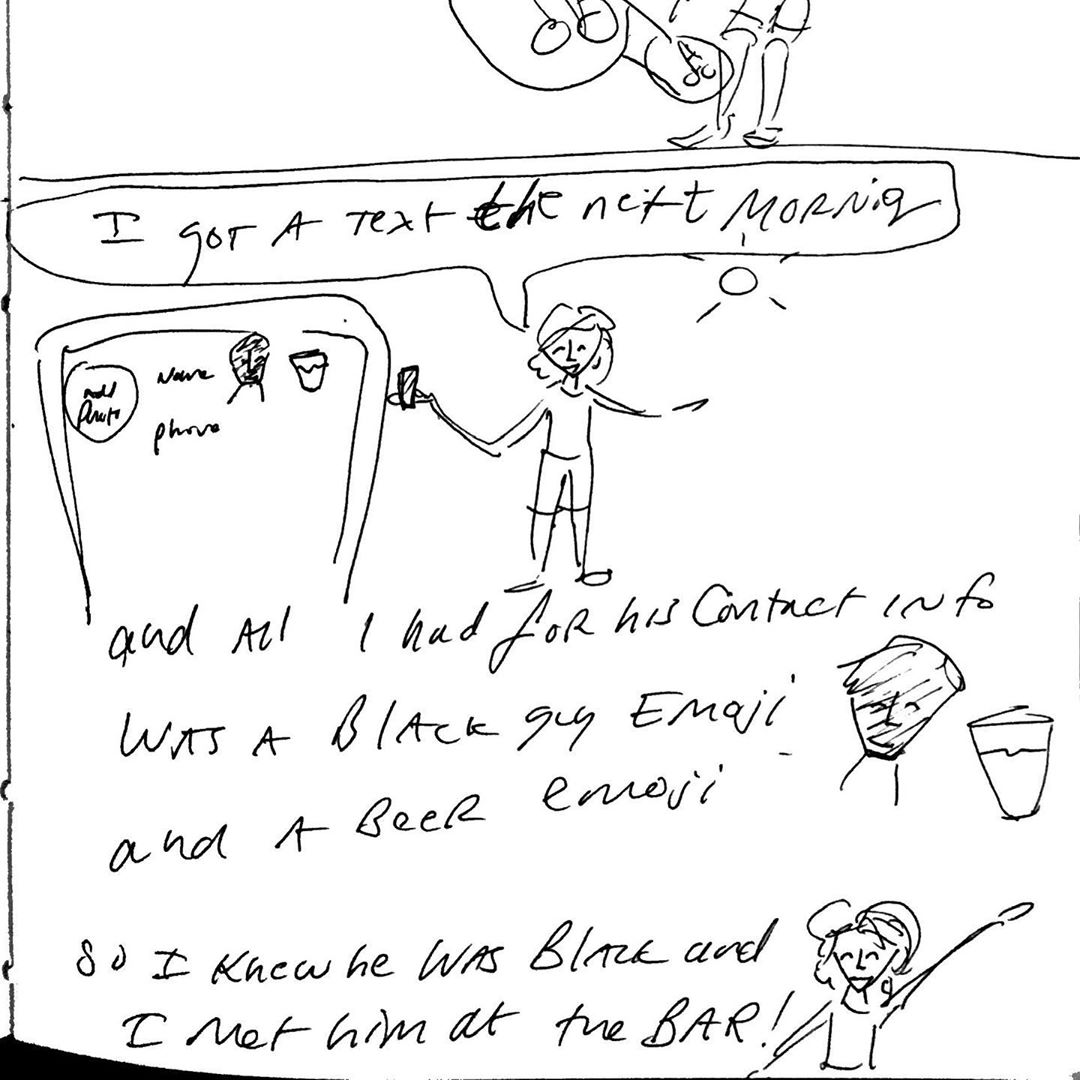 I GOT A TEXT the next MORNIG
add
Photo
Name
phone
and All I had foR his Contact info
WAS A BlAck guy EMoji
and A BeeR emoji
So I Knew he WAS BlAck and
I Met him at the BAR!